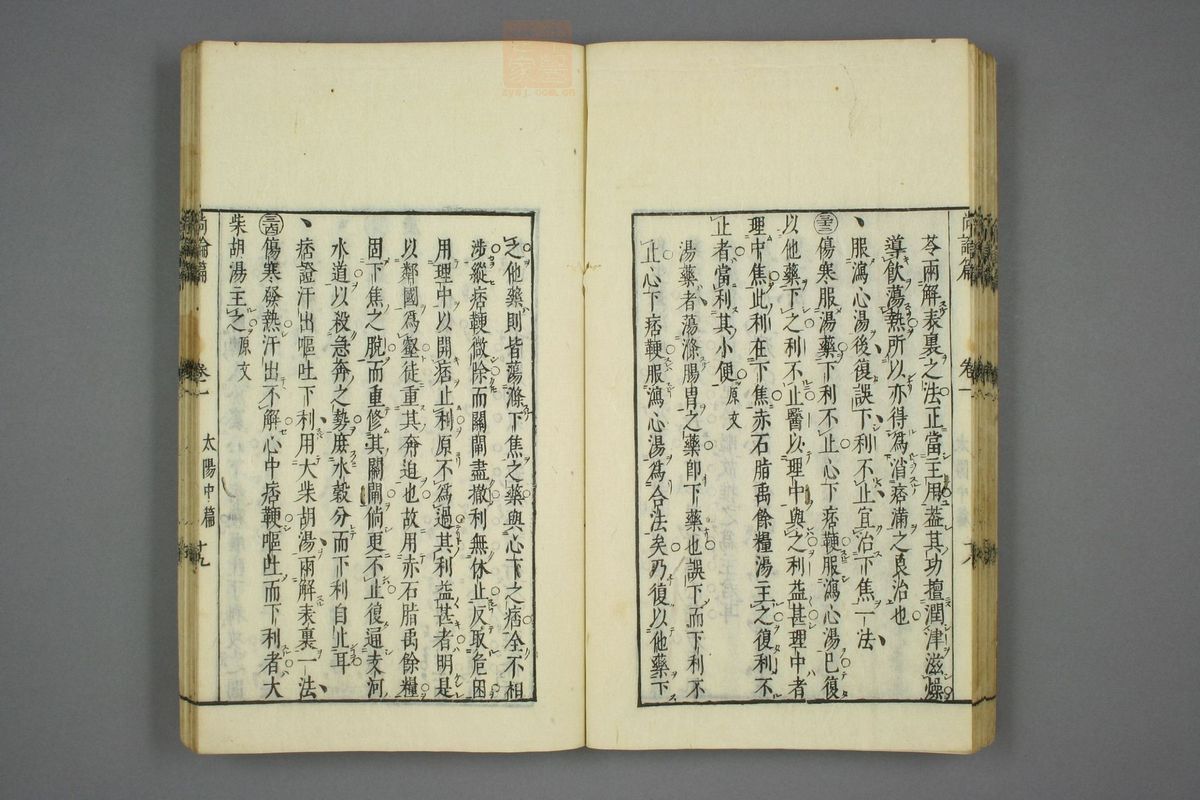 苓兩解表裏之法正當主用葢其功擅潤津滋燥
導飲蕩熱所以亦得為消痞滿之良治也
服瀉心湯後復誤下利不止宜治下焦一法
傷寒服湯藥下利不止心下痞鞕服瀉心湯已復
以他藥下之利不止醫以理中與之利益甚理中者
理中焦此利在下焦赤石脂禹餘糧湯主之復利不
止者當利其小便原文
湯藥者蕩滌腸胃之藥卽下藥也誤下而下利不
止心下痞鞕服瀉心湯為合法矣乃復以他藥下
尚論篇 卷一 太陽中篇
之他藥則皆蕩滌下焦之藥與心下之痞全不相
涉縱痞鞕微除而關閘盡撤利無休止反取危困
用理中以開痞止利原不為過其利益甚者明是
以鄰國為壑徒重其奔迫也故用赤石脂禹餘糧
固下焦之脫而重修其關閘倘更不止復通支河
水道以殺急奔之勢庶水穀分而下利自止耳
痞證汗出嘔吐下利用大柴胡湯兩解表裏一法
傷寒發熱汗出不解心中痞鞕嘔吐而下利者大
柴胡湯主之原文
尚論篇 卷一 太陽中篇 十九
zysj.com.cn